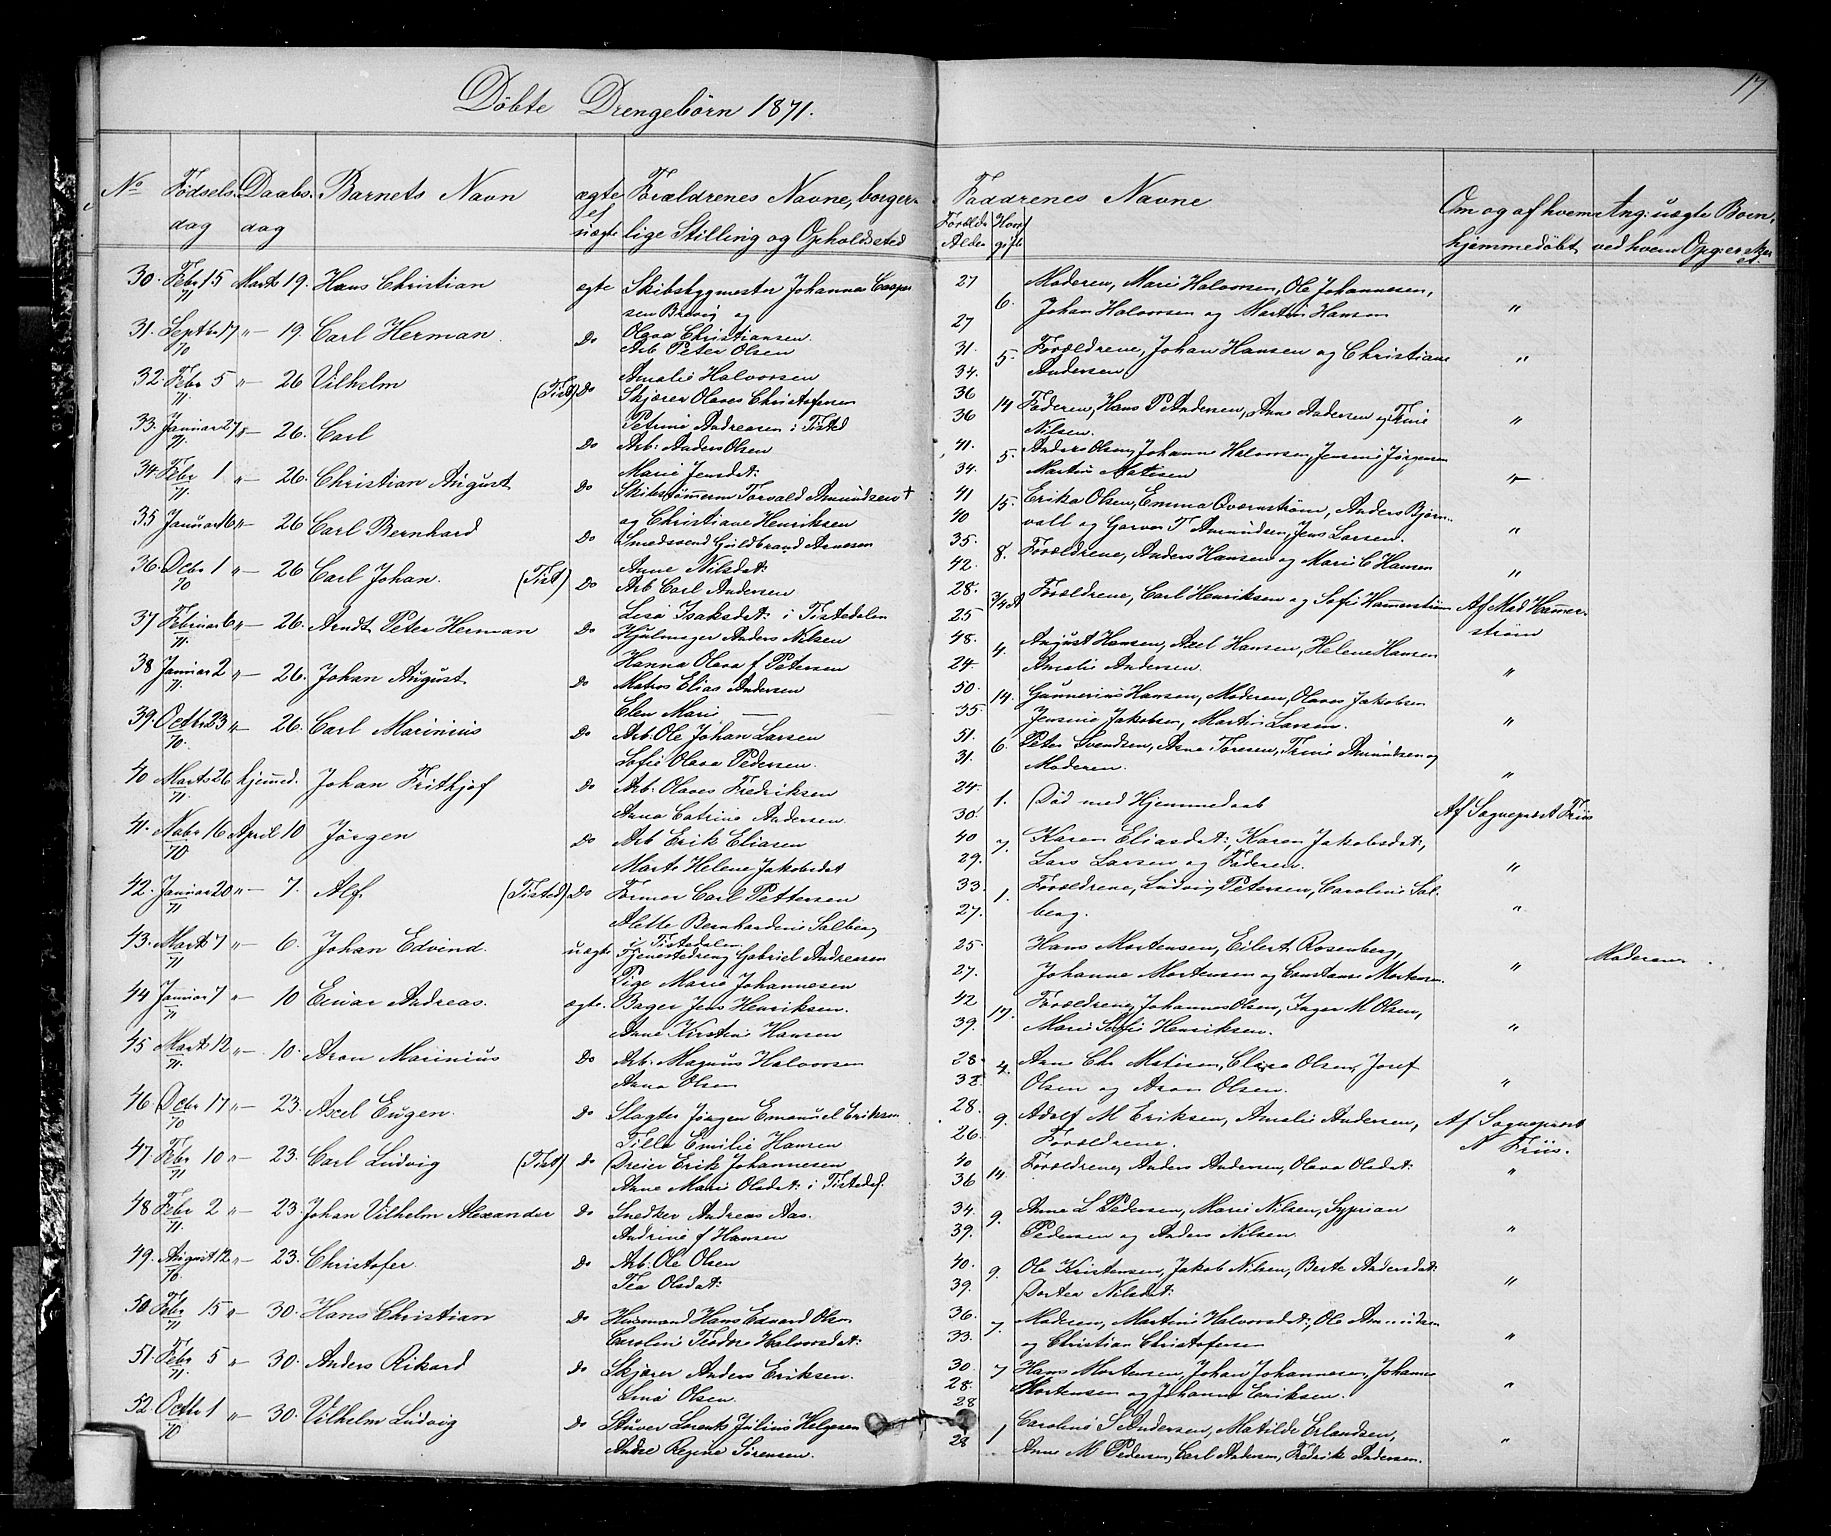 Döbte Drengebörn 1871.
17
No Födselsdag Daabsdag Barnets Navn ægte ell uægte Forældrenes Navne, borgerlige Stilling og Opholdssted Faddrenes Navne
Om og af hvem hjemmedöbt
30. Febr 15 71 Marts 19. Hans Christian ægte Skibsbygmester Johannes Casper
sen Brevig og
Olava Christiansen
27 27 6. Moderen, Mari Halvorsen, Ole Johannesen,
Johan Halvorsen og Martin Hansen "
31. Septbr 17 70 "- 19. Carl Herman. Do Arb Peter Olsen
Amalie Halvorsen
31. 34. 5. Forældrene, Johan Hansen og Christiane
Andersen "
32. Febr 5 71 "- 26 Vilhelm (Tist) Do Skjærer Olaves Christofersen
Petrine Andreasen i Tisted
36 36 14 Faderen, Hans P Andersen, Anne Andersen og Trine
Nilsen. "
33. Januar 27 71. "- 26. Carl Do Arb: Anders Olsen
Mari Jensdat:
41. 34. 5. Anders Olsen, Johanne Halvorsen, Jensine Jörgensen
Martin Matisen "
34. Febr 1 71. "- 26. Christian August Do Skibstömerm Torvald Amundsen +
og Christiane Henriksen
41 40 15. Erika Olsen, Emma Qvernström, Anders Björn-
valt og Garver T Amundsen, Jens Larsen. "
35 Januar 16 71. "- 26 Carl Bernhard Do Smedsvend Guldbrand Arnesen
Anne Nilsdat:
35. 42. 8. Forældrene, Anders Hansen og Marie C Hansen "
36. Dcbr 1 70 "- 26 Carl Johan. (Tist) Do Arb Carl Andersen
Lisa Isaksdat: i Tistedalen
28. 25 3/4 A Forældrene, Carl Henriksen og Sofie Hammerström Af Mad Hammer-
ström
37 Februar 6 71. "- 26. Arndt Peter Herman Do Hjulmager Anders Nilsen
Hanna Olava f Petersen
48. 24. 4. August Hansen, Axel Hansen, Helene Hansen
Amalie Andersen. "
38 Januar 2 71. "- 26. Johan August Do Matros Elias Andersen
Elen Mari —
50. 35. 14. Gunnerius Hansen, Moderen, Olaves Jakobsen
Jensine Jakobsen, Martin Larsen. "
39. Octbr 23 70. "- 26. Carl Marinius Do Arb: Ole Johan Larsen
Sofie Olava Pedersen.
51. 31. 6. Peter Svendsen, Anne Toresen, Trine Amundsen og
Moderen. "
40 Marts 26 71. hjemmed. Johan Frithjof Do Arb: Olaves Fredriksen
Anna Catrine Andersen.
24. 30. 1. Död med Hjemmedaab Af Sogneprest Friis
41. Nobr 16 70 April 10 Jörgen Do Arb Erik Eliasen
Marte Helene Jakobsdat
40 29. 7. Karen Eliasdat:, Karen Jakobsdat:,
Lars Larsen og Faderen. "
42. Januar 20 71 "- 7. Alf. (Tisted) Do Former Carl Pettersen
Alette Bernhardine Salberg
i Tistedalen
33. 27. 1. Forældrene, Ludvig Petersen, Caroline Sal-
berg. "
43. Marts 7 71 "- 6. Johan Edvind. uægte Tjenestedreng Gabriel Andreasen
Pige Marie Johannesen
25. 27. Hans Mortensen, Eilert Rosenberg,
Johanne Mortensen og Constanse Mortensen " Moderen
44 Januar 7 71 "- 10 Einar Andreas. ægte. Bager Jens Henriksen.
Anne Kirstine Hansen
42 39. 17. Forældrene, Johannes Olsen, Inger M Olsen,
Marie Sofie Henriksen. "
45 Marts 12 71. "- 10. Aron Marinius Do Arb: Magnus Halvorsen
Anna Olsen
28. 38. 4. Anne Chr Matisen, Elisa Olsen, Josef
Olsen og Aron Olsen. "
46 Dcbr 17 70 "- 23. Axel Eugen. Do Slagter Jörgen Emanuel Eriksen
Tilla Emilie Hansen
28. 26. 9 Adolf M Eriksen, Amalie Andersen,
Forældrene. Af Sogneprest
N Friis.
47 Febr 10 71 "- 23. Carl Ludvig (Tist) Do Dreier Erik Johannesen
Anne Mari Olsdat: i Tistedal.
40 36 14. Forældrene, Anders Andersen, Olava Olsdat: "
48 Febr 2 71. "- 23. Johan Vilhelm Alexander Do Snedker Andreas Aas.
Andrine f Hansen
34. 39. 9. Anne L Pedersen, Mari Nilsen, Syprian
Pedersen og Anders Nilsen. "
49. August 12 70 "- 23. Christofer. Do Arb: Ole Olsen
Tea Olsdat:
40. 39. 9. Ole Kristensen, Jakob Nilsen, Berte Andersdat:
Dortea Nilsdat: "
50 Febr 15 71. "- 30. Hans Christian Do Husmand Hans Edvard Olsen
Caroline Teodne Halvorsdat:
36. 33. 7. Moderen, Martine Halvorsdat:, Ole Amundsen
og Christian Christofersen "
51. Febr 5 71. "- 30. Anders Rikard Do Skjærer Anders Eriksen.
Lina Olsen.
30. 28. 7 Hans Mortensen, Johan Johannesen, Johannes
Mortensen og Johanne Eriksen. "
52. Octbr 1 70 "- 30. Vilhelm Ludvig Do Stuver Lorents Julius Helgesen
Andre Regine Sörensen.
28 28 1 Caroline S Andersen, Matilde Erlandsen,
Anne M Pedersen, Carl Andersen, Fedrik Andersen. "